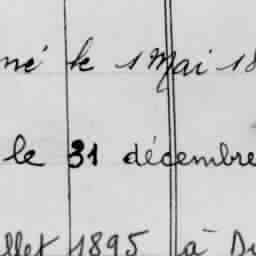 né le 1 Mai 18
le 31 décembre
illet 1895 à Du